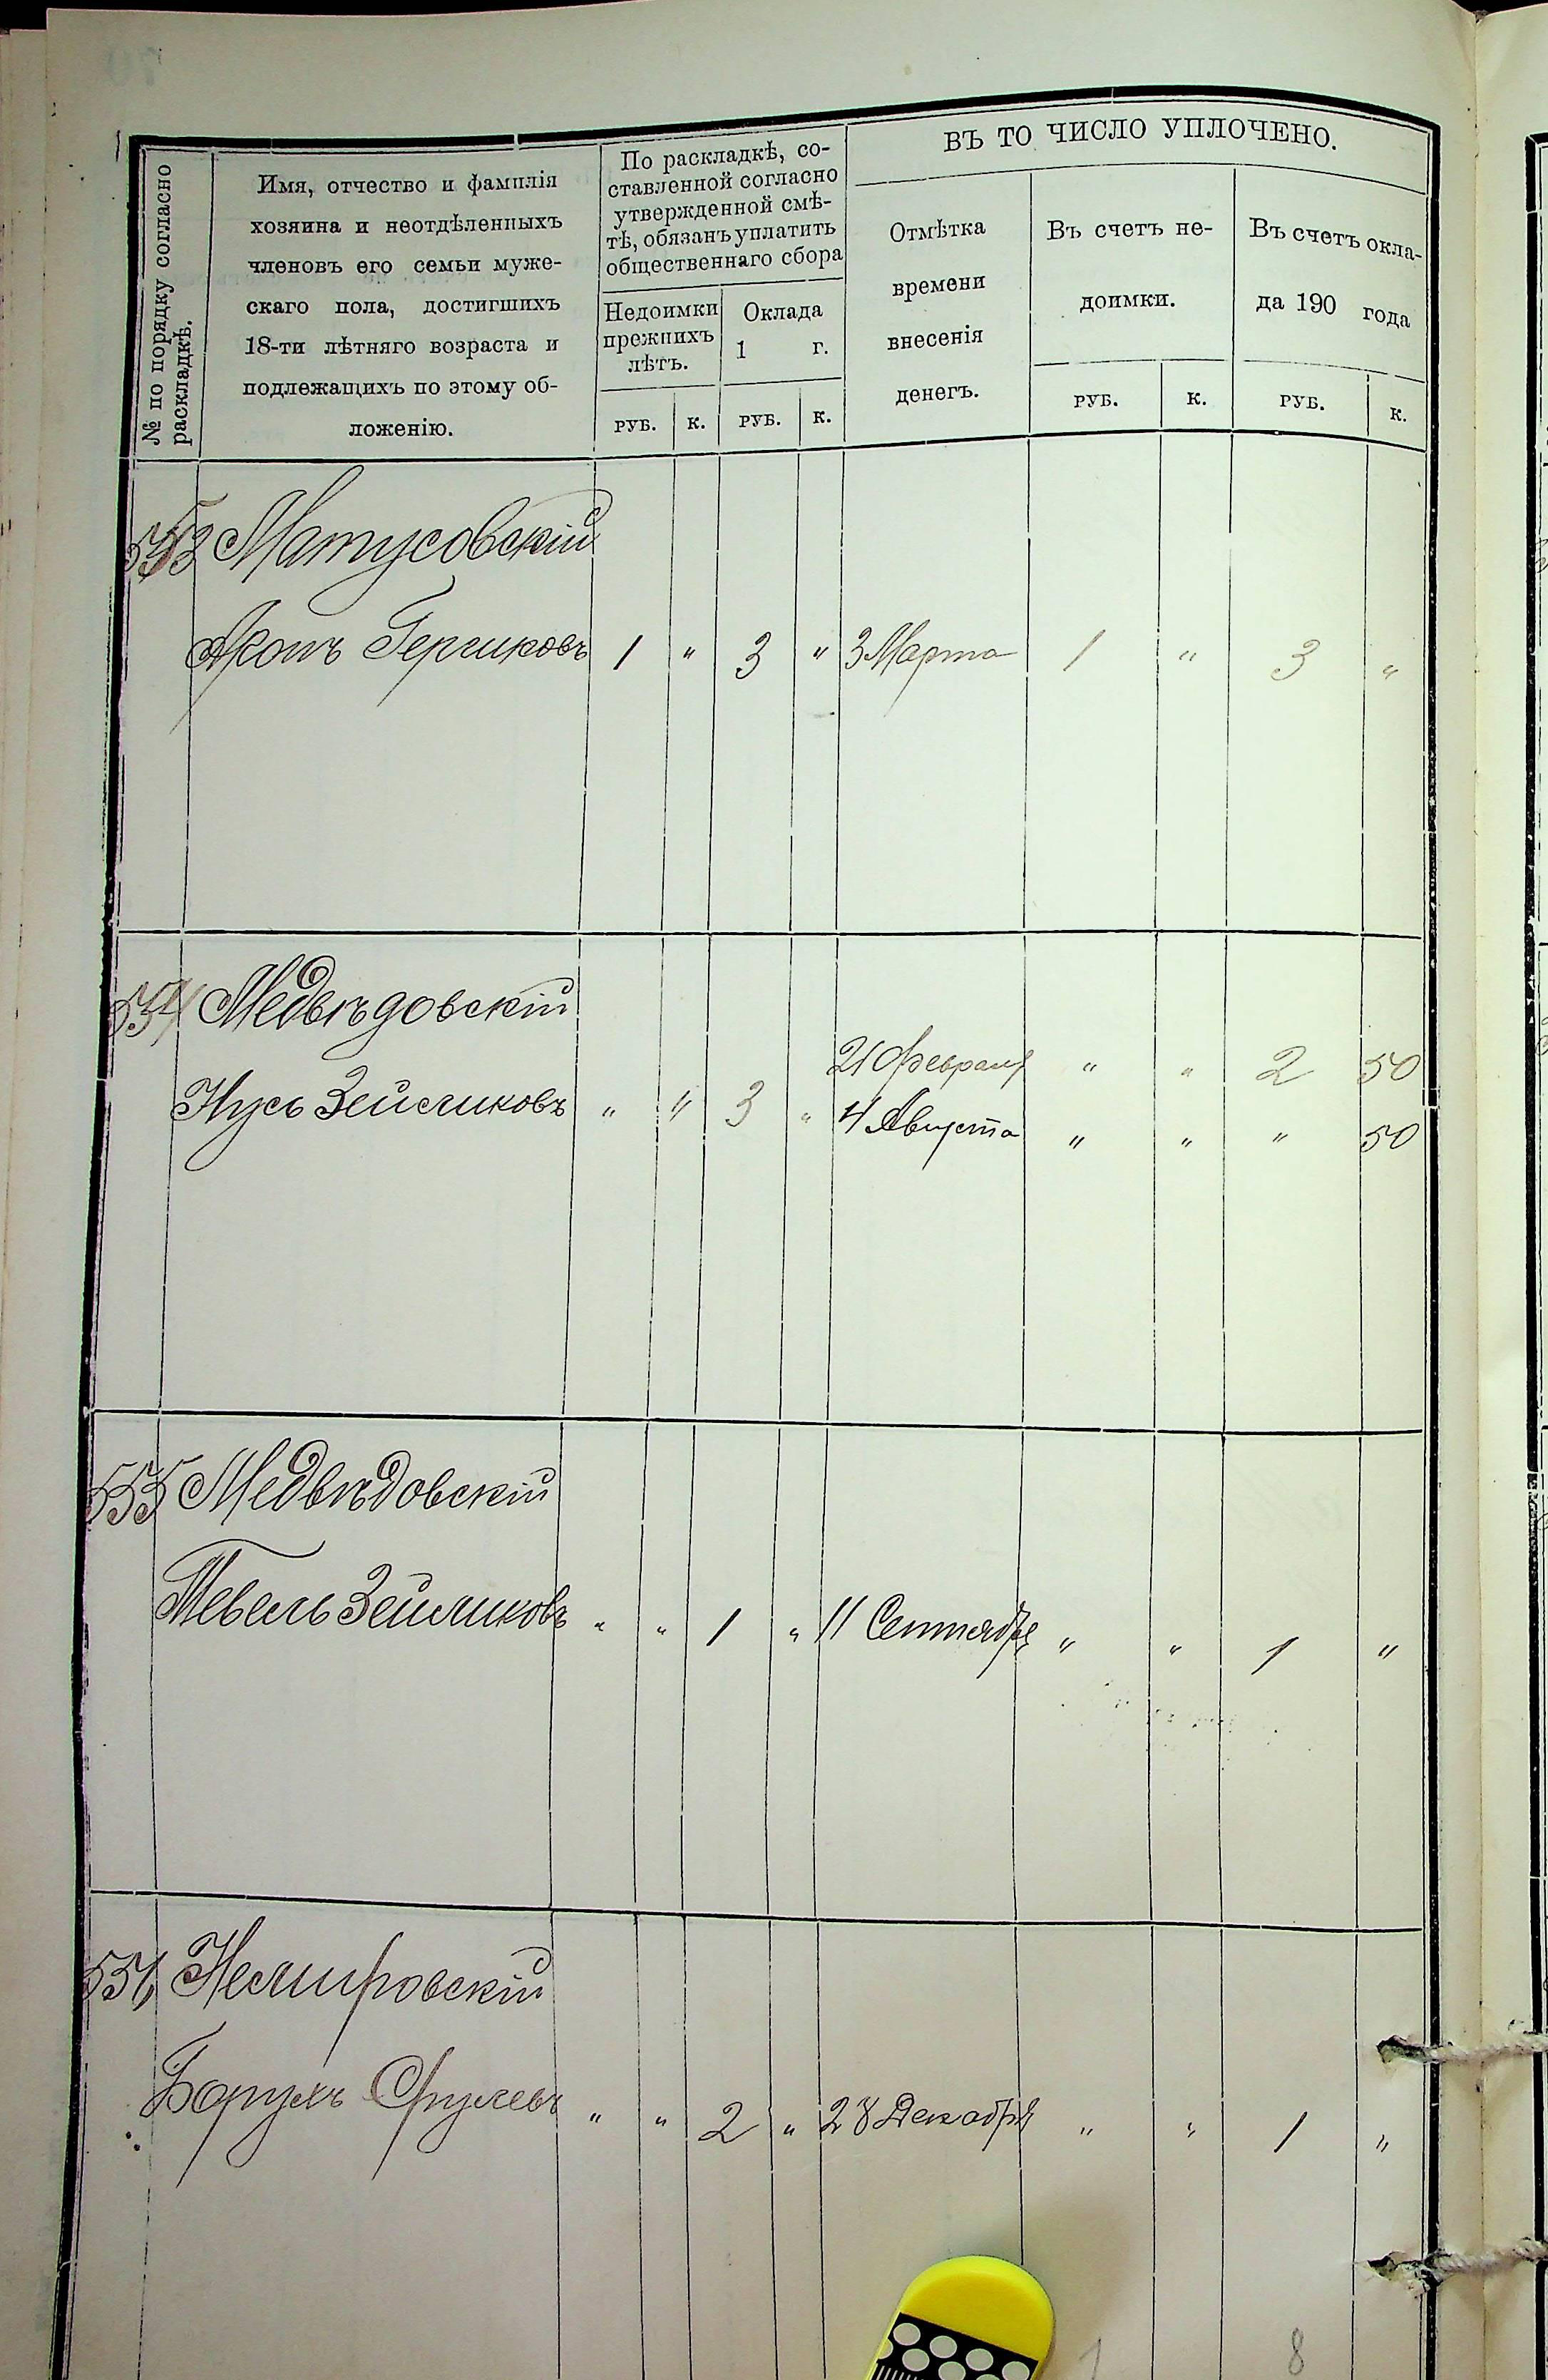 ВЪ ТО ЧИСЛО УПЛОЧЕНО.
№ по порядку согласно
раскладкѣ.
Имя, отчество и фамилія
хозяина и неотдѣленныхъ
членовъ его семьи муже-
скаго пола, достигшихъ
18-ти лѣтняго возраста и
подлежащихъ по этому об-
ложенію.
По раскладкѣ, со-
ставленной согласно
утвержденной смѣ-
тѣ, обязанъ уплатить
общественнаго сбора
Недоимки
прежнихъ
лѣтъ.
Оклада
1 г.
Отмѣтка
времени
внесенія
денегъ.
Въ счетъ не-
доимки.
Въ счетъ окла-
да 190 года
РУБ. К. РУБ. К. РУБ. К. РУБ. К.
553 Матусовскій
Аронъ Гершковъ 1 " 3 " 3 Марта 1 " 3 "
554 Медвѣдовскій
21 Февраля " " 2 50
Нусь Зейликовъ " " 3 " 4 Августа " " " 50
555 Медвѣдовскій
Тевель Зейликовъ " " 1 " 11 Сентября " " 1 "
556 Немировскій
Борухъ Срулевъ " " 2 " 28 Декабря " " 1 "
1 8